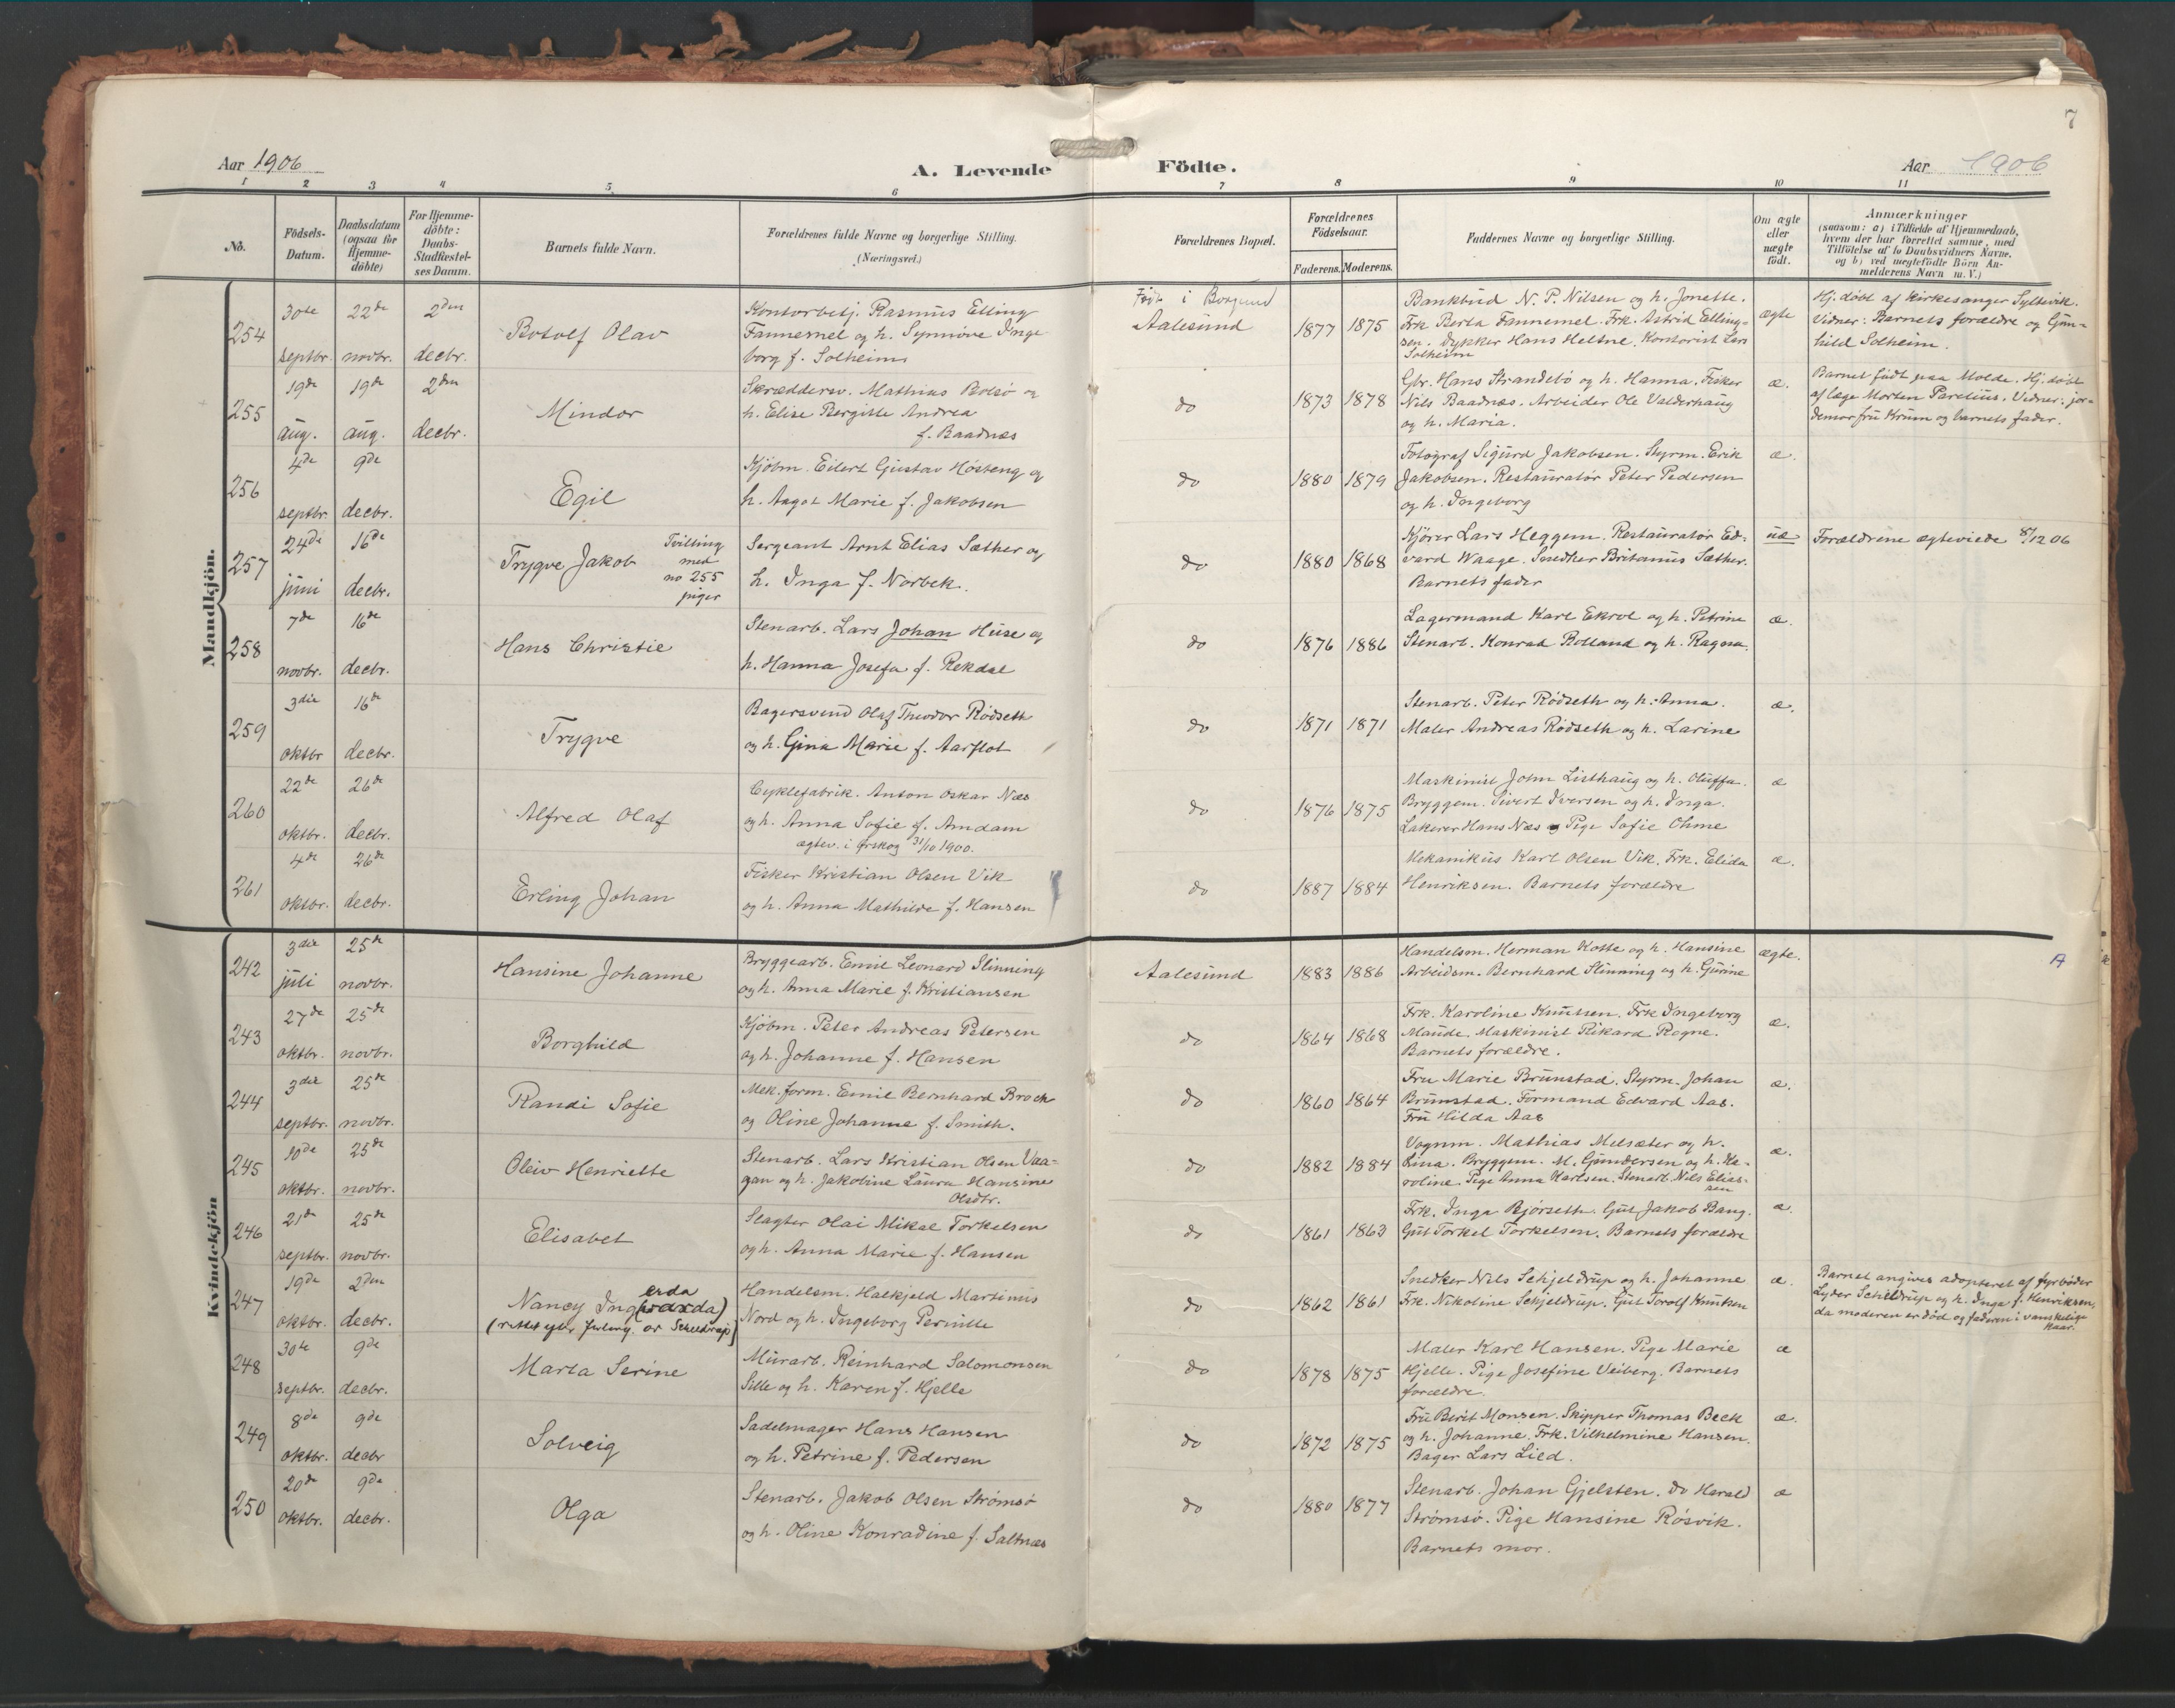 7
Aar 1906
A. Levende Födte.
Aar 1906
1 2 3 4 5 6 7 8 9 10 11
No.
Födsels-
Datum.
Daabsdatum
(ogsaa for
Hjemme-
döbte)
For Hjemme-
döbte:
Daabs-
Stadfæstel-
ses Datum.
Barnets fulde Navn.
Forældrenes fulde Navne og borgerlige Stilling.
(Næringsvei.)
Forældrenes Bopæl.
Forældrenes
Födselsaar.
Faderens. Moderens.
Faddernes Navne og borgerlige Stilling.
Om ægte
eller
uægte
födt.
Anmærkninger
(saasom: a) i Tilfælde af Hjemmedaab,
hvem der har forrettet samme, med
Tilföielse af to Daabsvidners Navne,
og b) ved uegtefödte Börn An-
melderens Navn m. V.)
Mandkjön.
254
30te septbr.
22de novbr.
2den decbr.
Botolf Olav
Kontorbetj. Rasmus Elling
Fannemel og h. Synnöve Inge
borg f. Solheim
Födt i Borgund
Aalesund
1877 1875
Bankbud N. P. Nilsen og h. Jonette.
Frk Berta Fannemel. Frk. Astrid Elling-
sen. Dykker Hans Heltne. Kontorist Lars
Solheim
ægte
Hj. døbt af Kirkesanger Syltevik.
Vidner: Barnets forældre og Gun-
hild Solheim.
255
19de aug.
19de aug.
2den decbr.
Mindor
Skræddersv. Mathias Bolsø og
h. Elise Bergitte Andrea
f. Baadnæs
do
1873 1878
Gbr. Hans Strandebø og h. Hanna. Fisker
Nils Baadnæs. Arbeider Ole Valderhaug
og h. Maria.
æ.
Barnet født paa Molde. Hj. døbt
af læge Morten Parelius. Vidner: jor-
demor fru Krum og barnets fader.
256
4de septbr.
9de decbr.
Egil
Kjøbm. Eilert Gustav Høsteng og
h. Aagot Marie f. Jakobsen
do
1880 1879
Fotograf Sigurd Jakobsen. Styrm. Erik
Jakobsen. Restauratør Peter Pedersen
og h. Ingeborg
æ.
257
24de juni
16de decbr.
Trygve Jakob
Tvilling
med
no 255
piger
Sergeant Arnt Elias Sæther og
h. Inga f. Norbek.
do
1880 1868
Kjører Lars Heggem. Restauratør Ed-
vard Waage. Snedker Britanus Sæther.
Barnets fader
uæ
Forældrene ægteviede 8/12 06
258
7de novbr.
16de decbr.
Hans Christie
Stenarb. Lars Johan Huse og
h. Hanna Josefa f. Rekdal
do
1876 1886
Lagermand Karl Ekrol og h. Petrine
Stenarb. Konrad Rolland og h. Ragna.
æ.
259
3die oktbr
16de decbr.
Trygve
Bagersvend Olaf Theodor Rødseth
og h. Gina Marie f. Aarflot
do
1871 1871
Stenarb. Peter Rødseth og h. Anna.
Maler Andreas Rødseth og h. Larine
æ.
260
22de oktbr.
26de decbr.
Alfred Olaf
Cyklefabrik. Anton Oskar Næs
og h. Anna Sofie f. Amdam
ægtev. i Ørskog 31/10 1900.
do
1876 1875
Maskinist John Listhaug og h. Oluffa.
Bryggem. Sivert Iversen og h. Inga.
Lakerer Hans Næs og Pige Sofie Ohme
æ
261
4de oktbr.
26de decbr.
Erling Johan
Fisker Kristian Olsen Vik
og h. Anna Mathilde f. Hansen
do
1887 1884
Mekanikus Karl Olsen Vik. Frk. Elida
Henriksen. Barnets forældre
æ.
Kvindekjön
242
3die juli
25de novbr.
Hansine Johanne
Bryggearb. Emil Leonard Slinning
og h. Anna Marie f. Kristiansen
Aalesund
1883 1886
Handelsm. Herman Kotte og h. Hansine
Arbeidsm. Bernhard Slinning og h. Gurine
ægte.
243
27de oktbr.
25de novbr.
Borghild
Kjøbm. Peter Andreas Petersen
og h. Johanne f. Hansen
do
1864 1868
Frk. Karoline Knutsen. Frk Ingeborg
Maude. Maskinist Rikard Rogne.
Barnets forældre.
æ.
244
3die septbr.
25de novbr.
Randi Sofie
Mek. form. Emil Bernhard Broch
og Oline Johanne f. Smith.
do
1860 1864
Fru Marie Brunstad. Styrm. Johan
Brunstad. Formand Edvard Aas.
Fru Hilda Aas
æ.
245
10de oktbr.
25de novbr.
Oleiv Henriette
Stenarb. Lars Kristian Olsen Vaa-
gan og h. Jakobine Laura Hansine
Olsdtr.
do
1882 1884
Vognm. Mathias Melsæter og h.
Lina. Bryggem. M. Gundersen og h. Ka-
roline. Pige Anna Karlsen. Stenarb. Nils Elias-
sen
æ.
246
21de septbr.
25de novbr.
Elisabet
Slagter Olai Mikal Torkelsen
og h. Anna Marie f. Hansen
do
1861 1863
Frk. Inga Bjørseth. Gut Jakob Bang.
Gut Torkel Torkelsen. Barnets forældre
æ.
247
19de oktbr.
2den decbr.
Nancy Ing
erda
Handelsm. Halkjeld Martinus
Nord og h. Ingeborg Pernille
do
1862 1861
Snedker Nils Schjeldrup og h. Johanne
Frk. Nikoline Schjeldrup. Gut Torolf Knutsen
æ.
Barnet angives adopteret af fyrbøder
Lyder Scheldrup og h. Inga f. Henriksen,
da moderen er død og faderen i vanskelige
kaar.
248
30te septbr.
9de decbr.
Marta Serine
Murarb. Reinhard Salomonsen
Sille og h. Karen f. Hjelle
do
1878 1875
Maler Karl Hansen. Pige Marie
Hjelle. Pige Josefine Veiberg. Barnets
forældre.
æ
249
8de oktbr.
9de decbr
Solveig
Sadelmager Hans Hansen
og h. Petrine f. Pedersen
do
1872 1875
Fru Berit Monsen. Skipper Thomas Beck
og h. Johanne. Frk. Vilhelmine Hansen.
Bager Lars Lied.
æ.
250
20de oktbr.
9de decbr.
Olga
Stenarb. Jakob Olsen Strømsø
og h. Oline Konradine f. Saltnæs
do
1880 1877
Stenarb. Johan Gjelsten. do Harald
Strømsø. Pige Hansine Røsvik.
Barnets mor.
æ